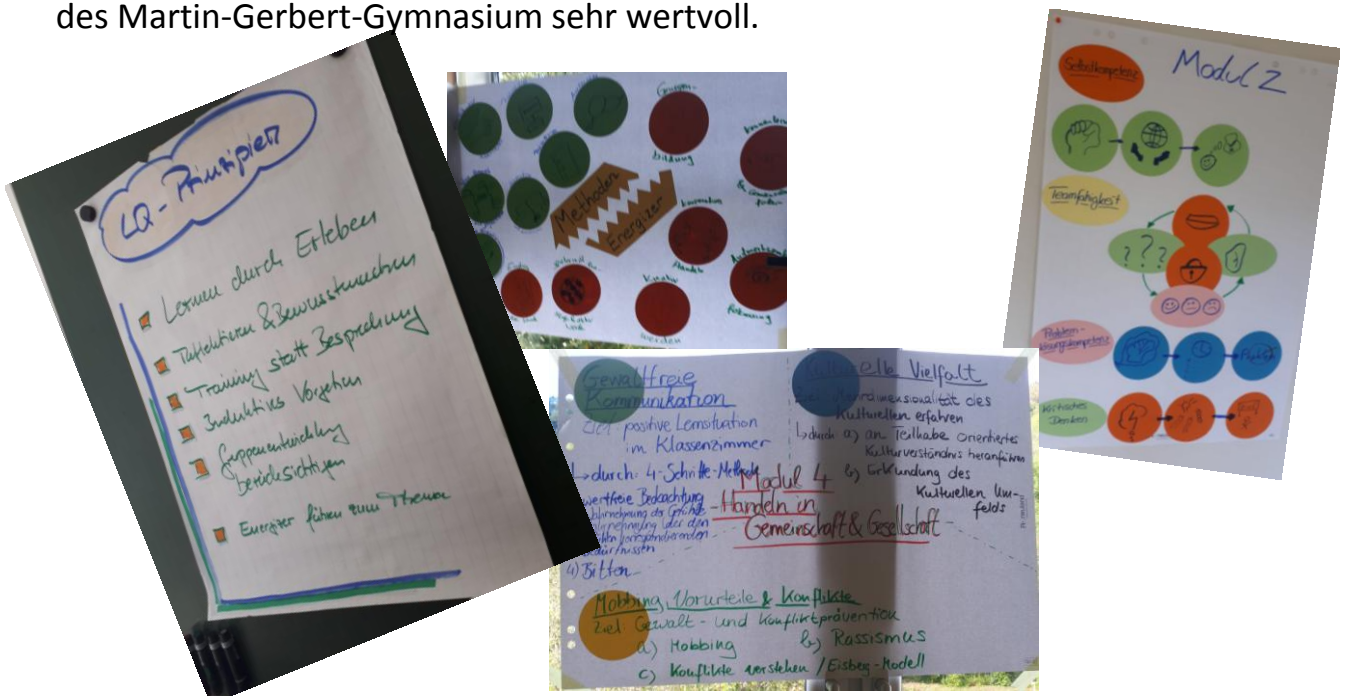 des Martin-Gerbert-Gymnasium sehr wertvoll.
LQ-Prinzipien
Lernen durch Erleben
Reflektieren & Bewusstmachen
Training statt Besprechung
Induktives Vorgehen
Gruppenentwicklung
berücksichtigen
Energizer führen zum Thema
Gruppen-
bildung
Methoden
Energizer
werden
Modul 2
Selbstkompetenz
Teamfähigkeit
? ? ?
Problem-
lösungskompetenz
Kritisches
Denken
Gewaltfreie
Kommunikation
Ziel: positive Lernsituation
im Klassenzimmer
durch: 4-Schritte-Methode
wertfreie Beobachtung
4) Bitten
Kulturelle Vielfalt
Ziel: Mehrdimensionalität des
Kulturellen erfahren
durch a) an Teilhabe orientiertes
Kulturverständnis heranführen
b) Erkundung des
Kulturellen Um-
felds
Modul 4
-Handeln in
Gemeinschaft & Gesellschaft-
Mobbing, Vorurteile & Konflikte
Ziel: Gewalt- und Konfliktprävention
a) Mobbing
b) Rassismus
c) Konflikte verstehen / Eisberg-Modell